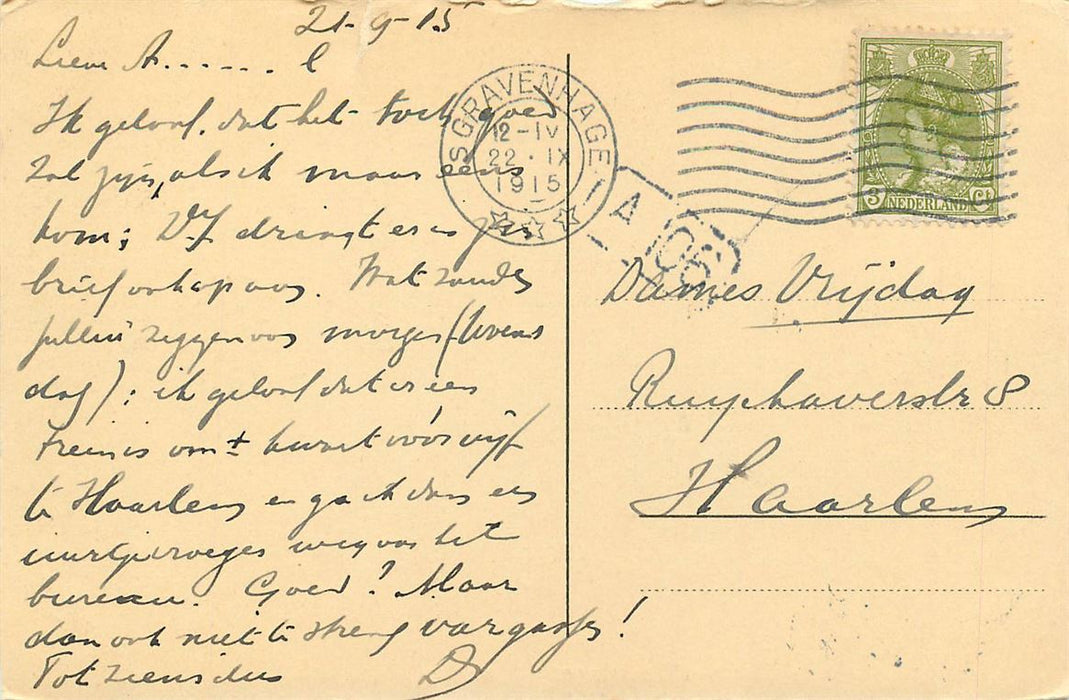 21-9-15
Lieve A...... l
Ik geloof, dat het toch goed
zal zijn, als ik maar eens
kom; dringt er in z'n
brief ook op aan. Wat zouden
jullie zeggen van morgen (Woens
dag): ik geloof dat er een
trein is om ± kwart vóór vijf
te Haarlem en ga ik dan een
uurtje vroeger weg van het
bureau. Goed? Maar
dan ook niet te streng
Tot ziens dus D
'S GRAVENHAGE
12-IV
22·IX
1915
A
3 NEDERLAND Ct
Dames Vrijdag
Ruychaverstr 8
Haarlem